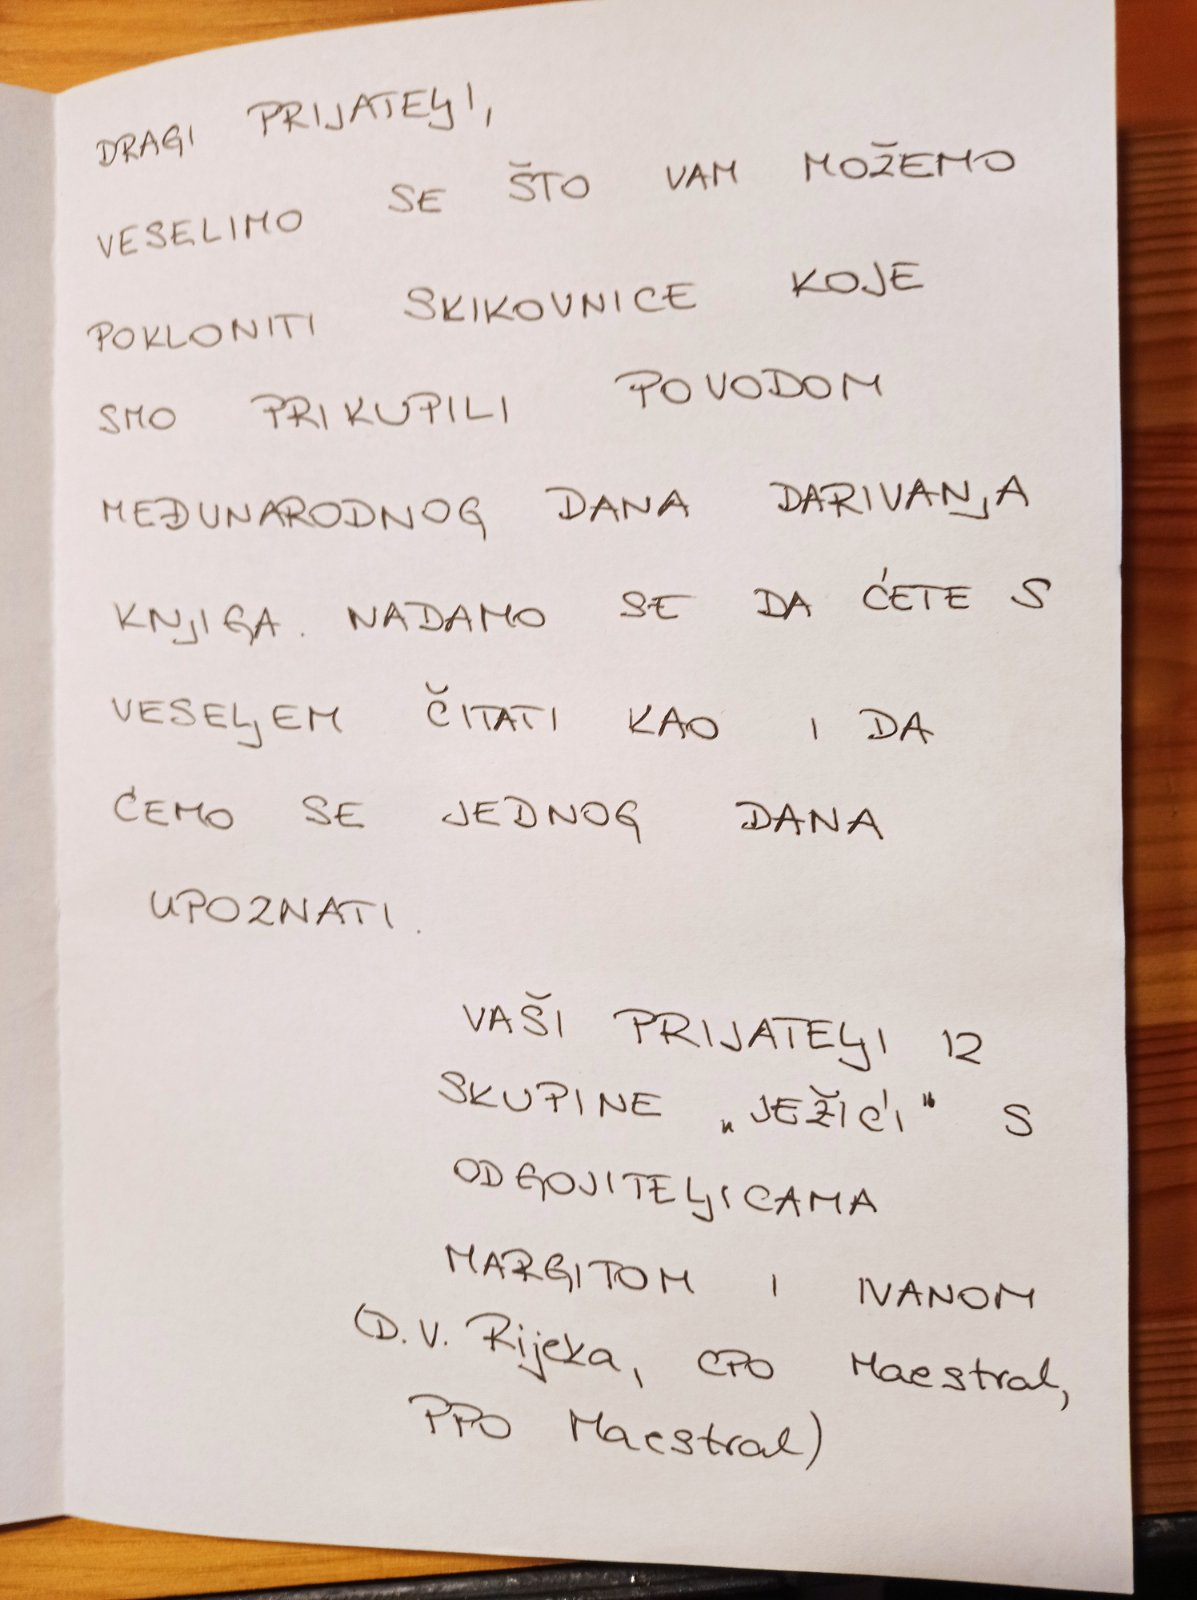 DRAGI PRIJATELJI,
VESELIMO SE ŠTO VAM MOŽEMO
POKLONITI SKIKOVNICE KOJE
SMO PRIKUPILI POVODOM
MEĐUNARODNOG DANA DARIVANJA
KNJIGA. NADAMO SE DA ĆETE S
VESELJEM ČITATI KAO I DA
ĆEMO SE JEDNOG DANA
UPOZNATI.
VAŠI PRIJATELJI IZ
SKUPINE „JEŽIĆI" S
ODGOJITELJICAMA
MARGITOM I IVANOM
(D.V. Rijeka, CPO Maestral,
PPO Maestral)